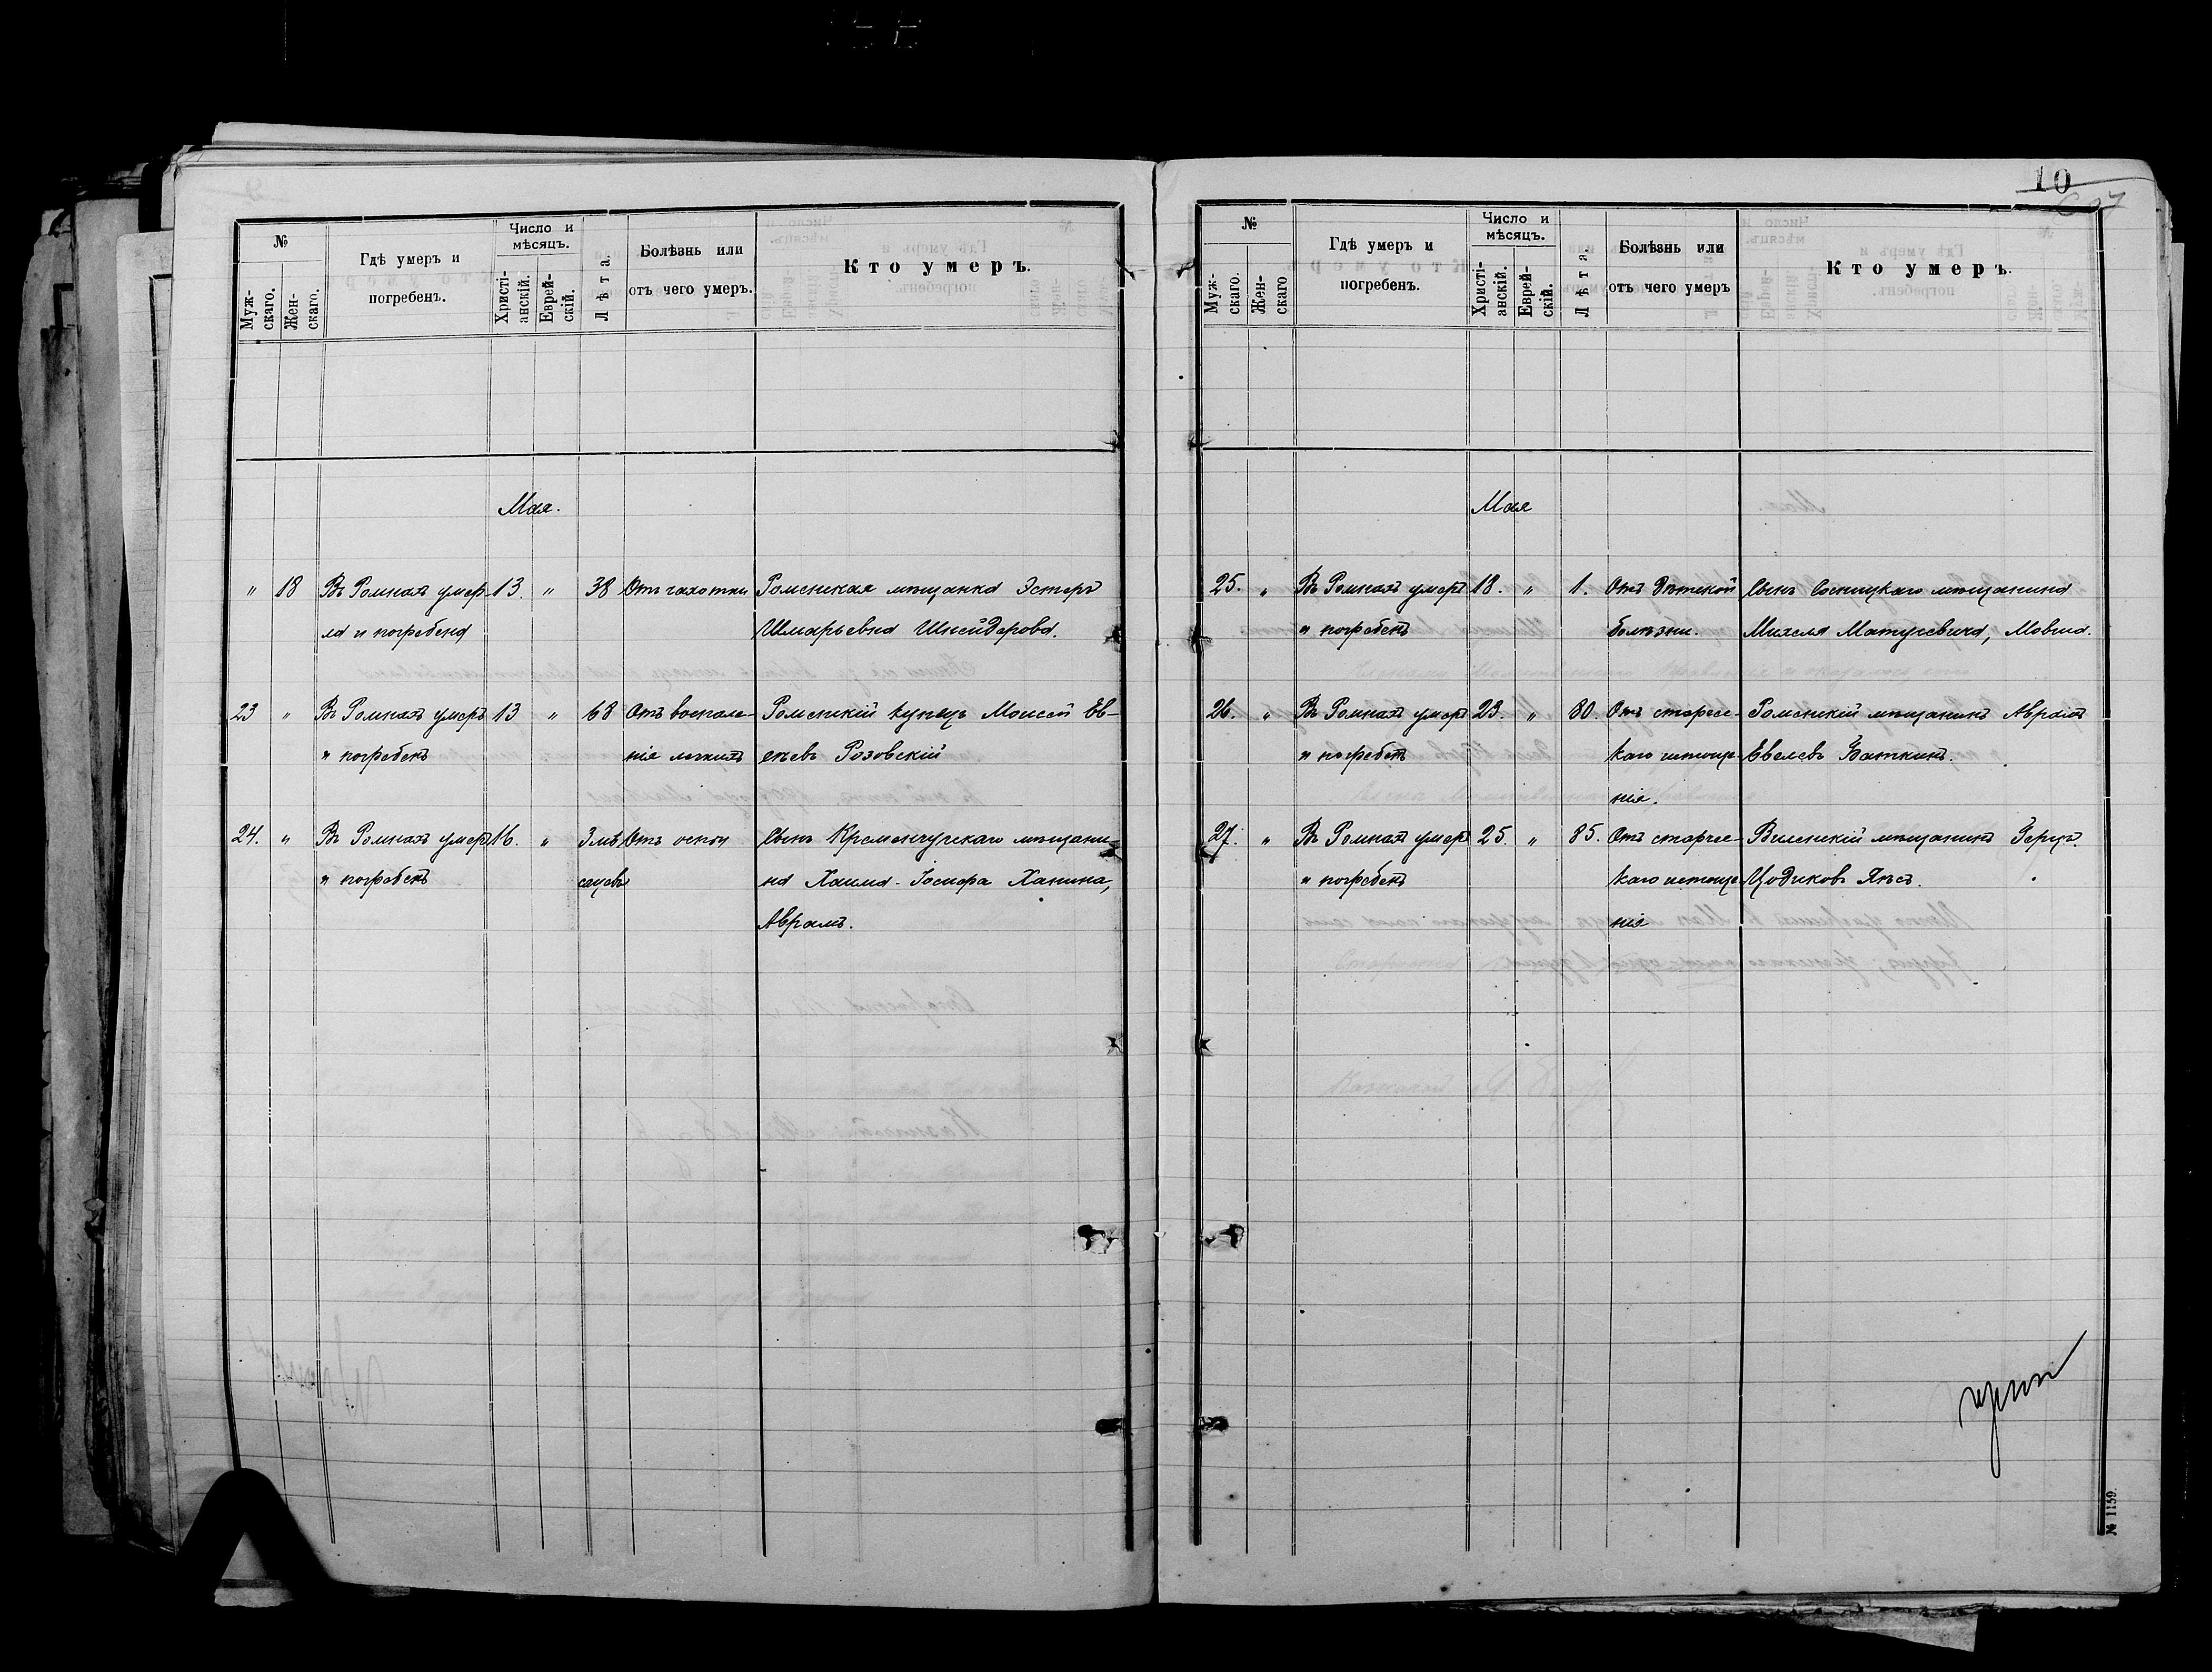 №
Муж-
скаго.
Жен-
скаго.
Гдѣ умеръ и
погребенъ.
Число и
мѣсяцъ.
Христі-
анскій.
Еврей-
скій.
Лѣта.
Болѣзнь или
отъ чего умеръ.
Кто умеръ.
Мая.
" 18 Въ Ромнахъ умер- 13. " 38 Отъ чахотки Роменская мѣщанка Эстеръ
ла и погребена Шмарьевна Шнейдерова.
23 " Въ Ромнахъ умеръ 13 " 68 Отъ воспале- Роменскій купецъ Моисей Ев-
и погребенъ нія легкихъ Розовскій
24. " Въ Ромнахъ умеръ 16. " 3 мѣ Отъ оспы Сынъ Кременчугскаго мѣщани-
и погребенъ сяцевъ на Хаима-Іосифа Ханина,
Аврамъ.
10
№
Муж-
скаго.
Жен-
скаго
Гдѣ умеръ и
погребенъ.
Число и
мѣсяцъ.
Христі-
анскій.
Еврей-
скій.
Лѣта.
Болѣзнь или
отъ чего умеръ
Кто умеръ.
Мая
25. " Въ Ромнахъ умеръ 18. " 1. Отъ дѣтской Сынъ Сосницкаго мѣщанина
и погребенъ болѣзни. Михеля Матусевича, Мовша.
26. " Въ Ромнахъ умеръ 23. " 80. Отъ старчес- Роменскій мѣщанинъ Аврамъ
и погребенъ каго истоще- Евелевъ Баткинъ.
нія.
27. " Въ Ромнахъ умеръ 25. " 85. Отъ старчес- Виленскій мѣщанинъ Герцъ
и погребенъ каго истоще- Цодиковъ
нія
№ 1159.